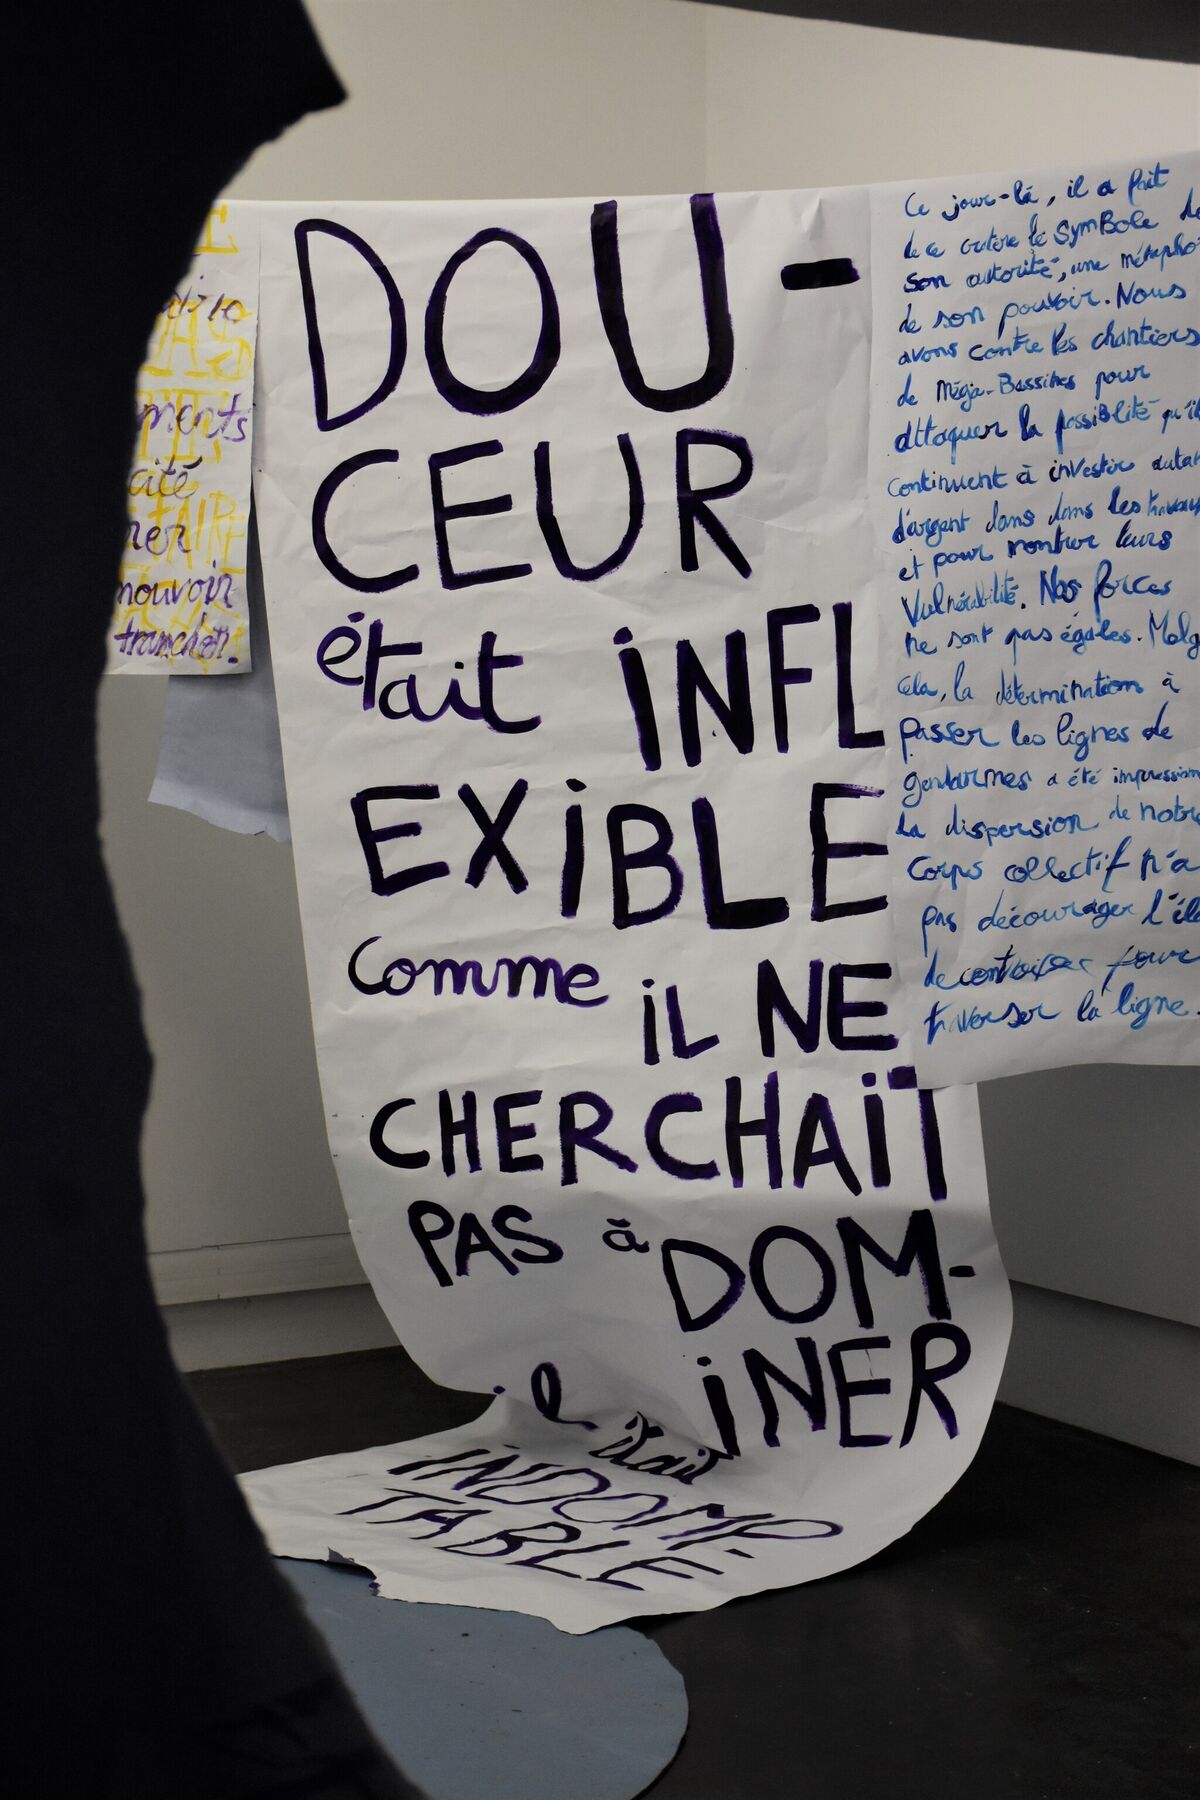 ments
cité
mouvoir
trancher.
DOU-
CEUR
était INFL
EXIBLE
comme IL NE
CHERCHAIT
PAS à DOM-
INER
il était
INDOMP-
TABLE
Ce jour-là, il a fait
de ce cratère le SymBole de
son autorité, une métapho
de son pouvoir. Nous
avons contre les chantiers
de Méga-Bassines pour
attaquer la possibilité qu'il
continuent à investir autan
d'argent dans dans les travaux
et pour montrer leurs
Vulnérabilité. Nos forces
ne sont pas égales. Malg
cela, la détermination à
passer les lignes de
gendarmes a été impression
la dispersion de notre
corps collectif n'a
pas décourager l'éla
de
traverser la ligne.